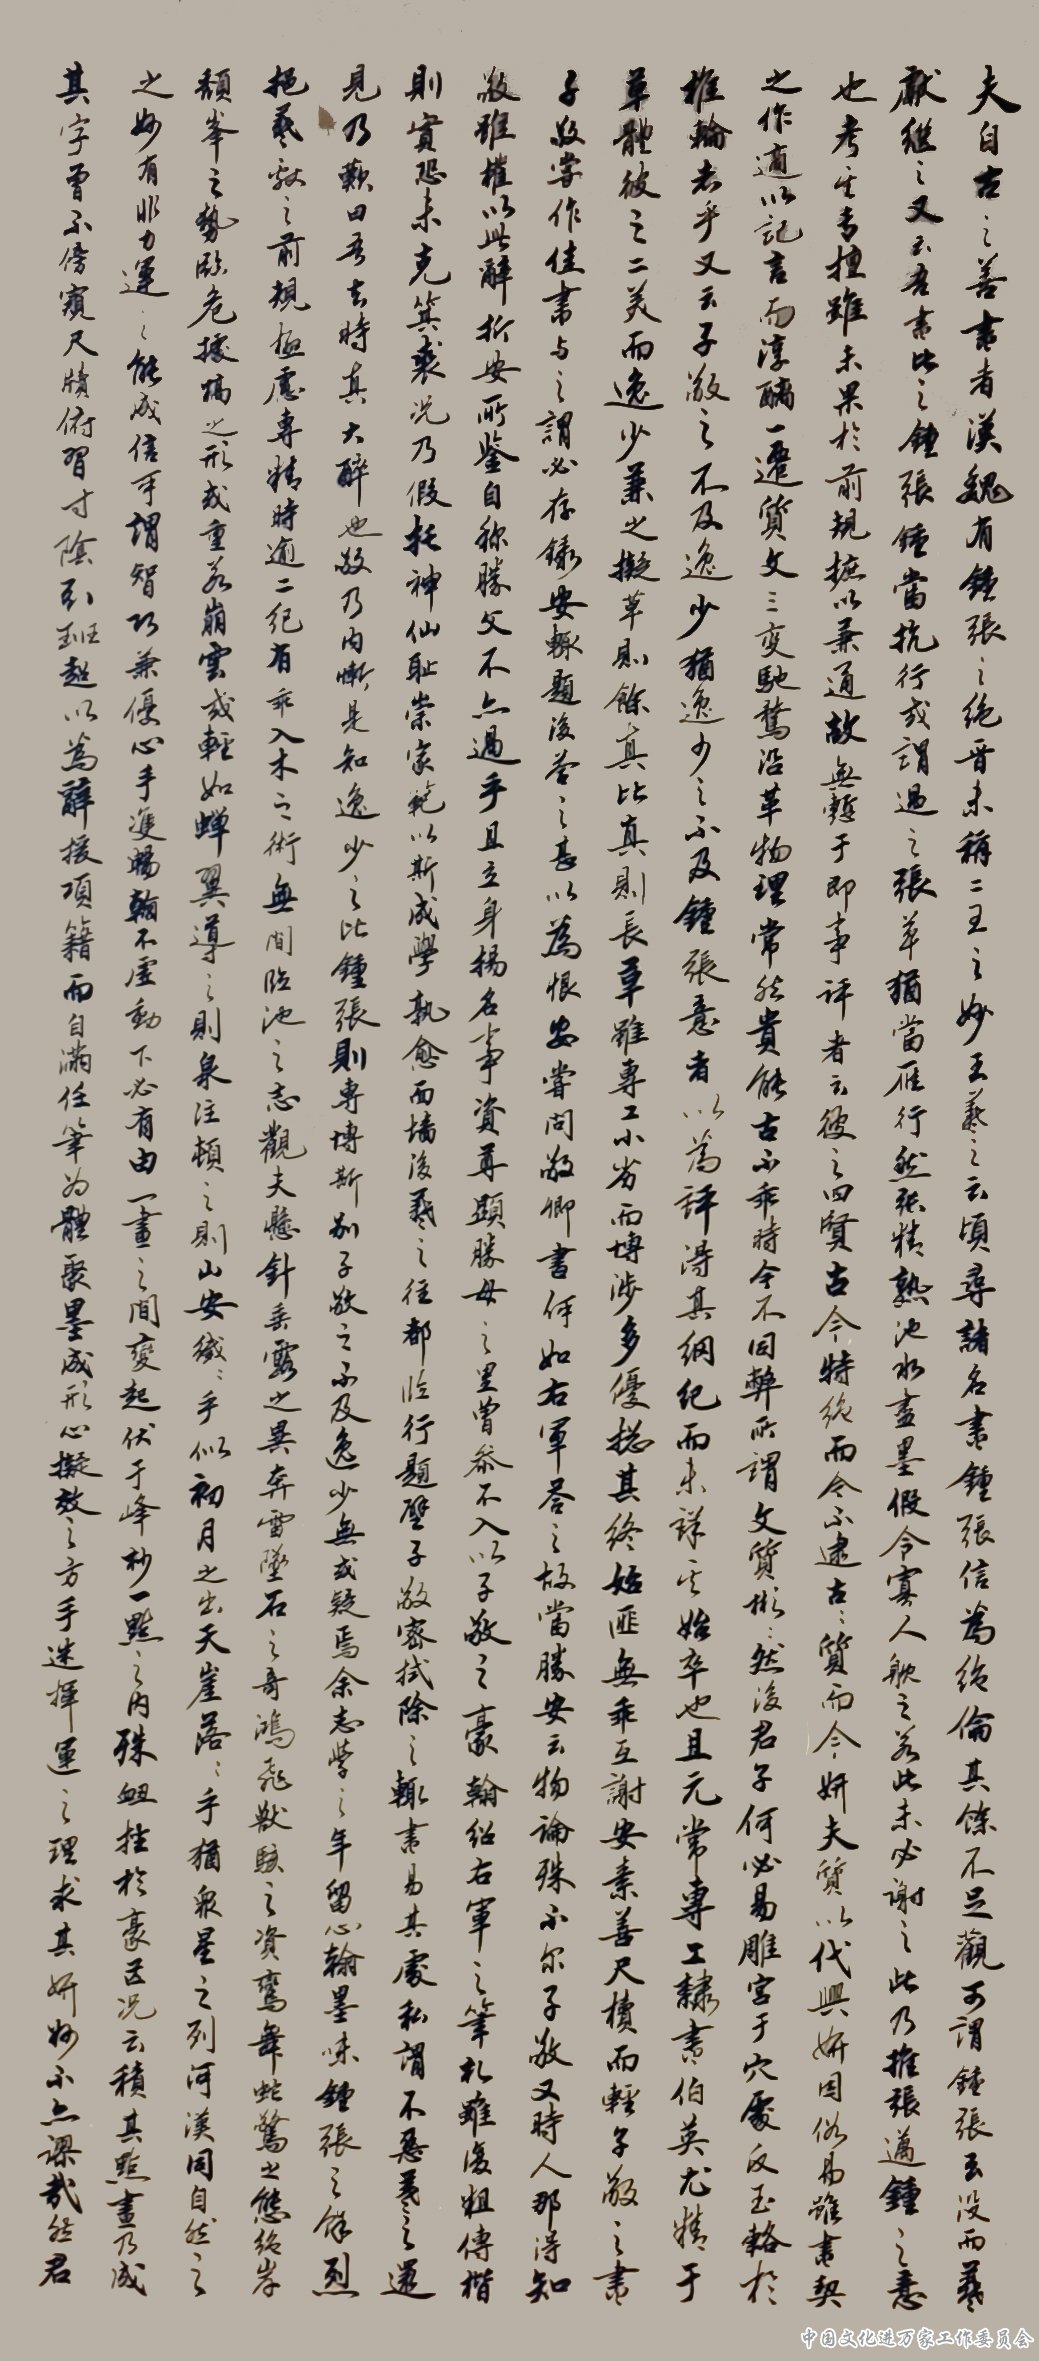 夫自古之善書者漢魏有鍾張之絕晉末稱二王之妙王羲之云頃尋諸名書鍾張信為絕倫其餘不足觀可謂鍾張云沒而羲
獻繼之又云吾書比之鍾張鍾當抗行或謂過之張草猶當雁行然張精熟池水盡墨假令寡人耽之若此未必謝之此乃推張邁鍾之意
也考其專擅雖未果於前規摭以兼通故無慙于即事評者云彼之四賢古今特絕而今不逮古古質而今妍夫質以代興妍因俗易雖書契
之作適以記言而淳醨一遷質文三變馳騖沿革物理常然貴能古不乖時今不同弊所謂文質彬彬然後君子何必易雕宮于穴處反玉輅於
椎輪者乎又云子敬之不及逸少猶逸少之不及鍾張意者以為評得其綱紀而未詳其始卒也且元常專工隸書伯英尤精于
草體彼之二美而逸少兼之擬草則餘真比真則長草雖專工小劣而博涉多優揔其終始匪無乖互謝安素善尺櫝而輕子敬之書
子敬嘗作佳書與之謂必存錄安輒題後答之甚以為恨安嘗問敬卿書何如右軍答云故當勝安云物論殊不尔子敬又時人那得知
敬雖權以此辭折安所鑒自稱勝父不亦過乎且立身揚名事資尊顯勝母之里曾參不入以子敬之豪翰紹右軍之筆札雖復粗傳楷
則實恐未克箕裘況乃假托神仙恥崇家範以斯成學孰愈面墻後羲之往都臨行題壁子敬密拭除之輒書易其處私謂不惡羲之還
見乃歎曰吾去時真大醉也敬乃內慙是知逸少之比鍾張則專博斯別子敬之不及逸少無或疑焉余志學之年留心翰墨味鍾張之餘烈
挹羲獻之前規極慮專精時逾二紀有乖入木之術無間臨池之志觀夫懸針垂露之異奔雷墜石之奇鴻飛獸駭之資鸞舞蛇驚之態絕岸
頹峯之勢臨危據槁之形或重若崩雲或輕如蟬翼導之則泉注頓之則山安纖纖乎似初月之出天崖落落乎猶衆星之列河漢同自然之
之妙有非力運之能成信可謂智巧兼優心手雙暢翰不虛動下必有由一畫之間變起伏于峰杪一點之內殊衄挫於豪芒況云積其點畫乃成
其字曾不傍窺尺牘俯習寸陰引班超以為辭援項籍而自滿任筆為體聚墨成形心擬效之方手迷揮運之理求其妍妙不亦謬哉然君
中国文化进万家工作委员会